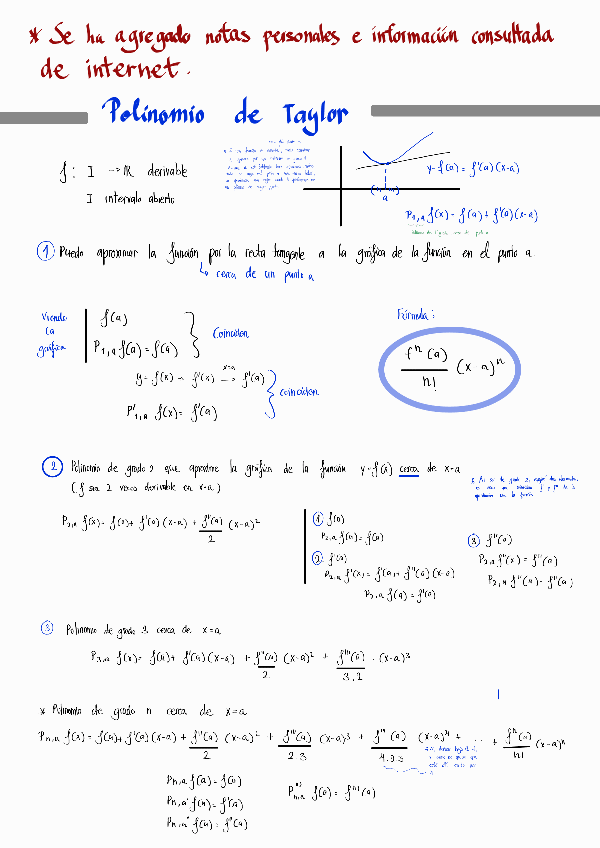 * Se ha agregado notas personales e información consultada
de internet.
Polinomio de Taylor
f: I → ℝ derivable
I intervalo abierto
y - f(a) = f'(a)(x-a)
a
P1,a f(x) = f(a) + f'(a)(x-a)
① Puedo aproximar la función por la recta tangente a la gráfica de la función en el punto a
↳ cerca de un punto a
Viendo
la
gráfica
f(a)
P1,a f(a) = f(a)
Coinciden
y = f(x) → f'(x) x=a → f'(a)
P'1,a f(x) = f'(a)
coinciden
Fórmula:
f^n(a)
n!
(x-a)^n
② Polinomio de grado 2 que aproxime la gráfica de la función y=f(x) cerca de x=a
(f sea 2 veces derivable en x=a)
P2,a f(x) = f(a) + f'(a)(x-a) + f''(a)/2 (x-a)^2
① f(a)
P2,a f(a) = f(a)
② f'(a)
P2,a f'(x) = f'(a) + f''(a)(x-a)
P2,a f(a) = f'(a)
③ f''(a)
P2,a f''(x) = f''(a)
P2,a f''(a) = f''(a)
③ Polinomio de grado 3 cerca de x=a
P3,a f(x) = f(a) + f'(a)(x-a) + f''(a)/2 (x-a)^2 + f'''(a)/3.2 . (x-a)^3
* Polinomio de grado n cerca de x=a
Pn,a f(x) = f(a) + f'(a)(x-a) + f''(a)/2 (x-a)^2 + f'''(a)/2.3 (x-a)^3 + f''''(a)/4.2.3 (x-a)^4 + ... + f^n(a)/n! (x-a)^n
Pn,a f(a) = f(a)
Pn,a' f(a) = f'(a)
Pn,a'' f(a) = f''(a)
Pn,a^(n) f(a) = f^(n)(a)